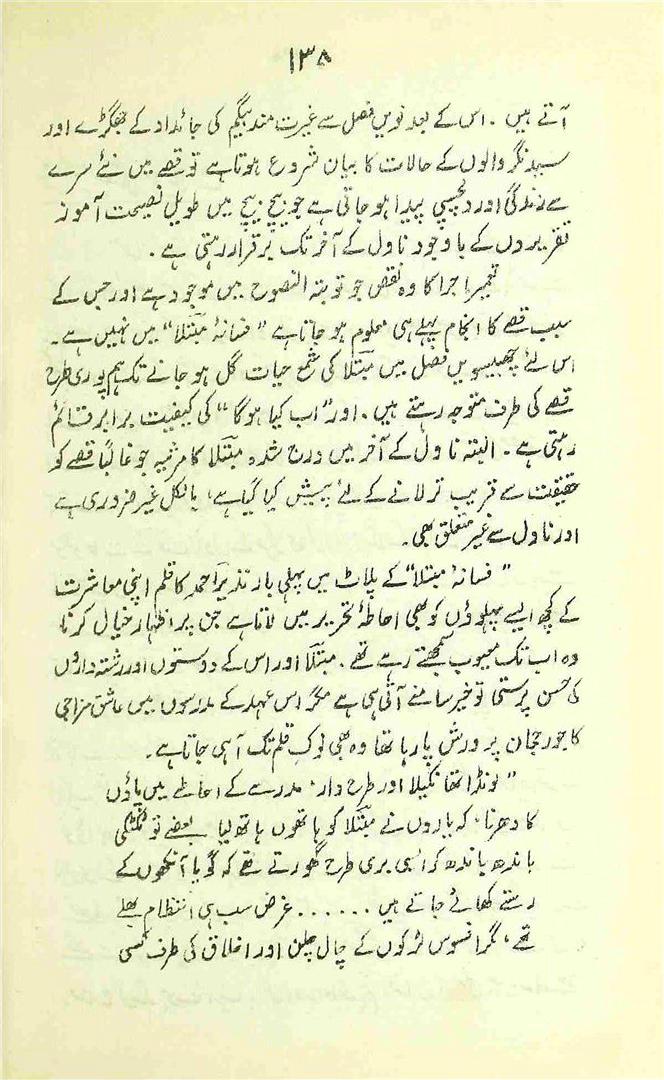 ۱۳۸
آتے ہیں ۔ اس کے بعد نویں فصل سے غیرت مند بیگم کی جائداد کے جھگڑے اور
سید نگر والوں کے حالات کا بیان شروع ہوتا ہے تو قصے میں نئے سرے
سے زندگی اور دلچسپی پیدا ہو جاتی ہے جو بیچ بیچ میں طویل نصیحت آموز
تقریروں کے باوجود ناول کے آخر تک برقرار رہتی ہے ۔
تعمیر ماجرا کا وہ نقص جو توبتہ النصوح میں موجود ہے اور جس کے
سبب قصے کا انجام پہلے ہی معلوم ہو جاتا ہے ”فسانۂ مبتلا“ میں نہیں ہے ۔
اس لئے چھبیسویں فصل میں مبتلا کی شمع حیات گل ہو جانے تک ہم پوری طرح
قصے کی طرف متوجہ رہتے ہیں ۔ اور ”اب کیا ہوگا“ کی کیفیت برابر قائم
رہتی ہے ۔ البتہ ناول کے آخر میں درج شدہ مبتلا کا مرثیہ جو غالباً قصے کو
حقیقت سے قریب تر لانے کے لئے پیش کیا گیا ہے ، بالکل غیر ضروری ہے
اور ناول سے غیر متعلق بھی ۔
”فسانۂ مبتلا“ کے پلاٹ میں پہلی بار نذیر احمد کا قلم اپنی معاشرت
کے کچھ ایسے پہلوؤں کو بھی احاطۂ تحریر میں لاتا ہے جن پر اظہار خیال کرنا
وہ اب تک معیوب سمجھتے رہے تھے ۔ مبتلا اور اس کے دوستوں اور رشتہ داروں
کی حسن پرستی تو خیر سامنے آتی ہی ہے مگر اس عہد کے مدرسوں میں عاشق مزاجی
کا جو رجحان پرورش پا رہا تھا وہ بھی نوکِ قلم تک آ ہی جاتا ہے ۔
”لونڈا تھا نکیلا اور طرح دار ، مدرسے کے احاطے میں پاؤں
کا دھرنا ، کہ یاروں نے مبتلا کو ہاتھوں ہاتھ لیا بعضے تو ٹکٹکی
باندھ باندھ کر ایسی بری طرح گھورتے تھے کہ گویا آنکھوں کے
رستے کھائے جاتے ہیں ...... غرض سب ہی انتظام بھلے
تھے ، مگر افسوس لڑکوں کے چال چلن اور اخلاق کی طرف کسی